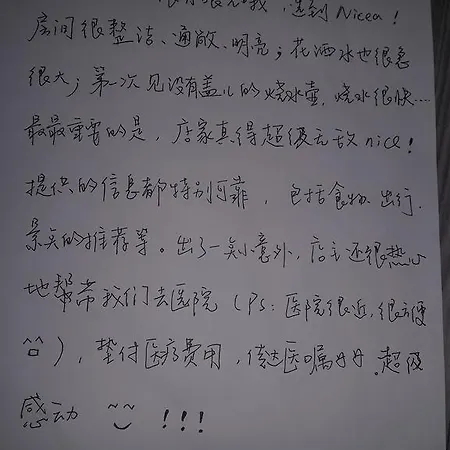 很 我，遇到Nicea！
房间很整洁、通敞、明亮；花洒水也很急
很大；第一次见没有盖儿的烧水壶，烧水很快……
最最重要的是，店家真得超级无敌nice！
提供的信息都特别可靠，包括食物、出行、
景点的推荐等。出了一点小意外，店主还很热心
地帮带我们去医院（Ps：医院很近，很方便
^口^），垫付医疗费用，传达医嘱……超级
感动 !!!